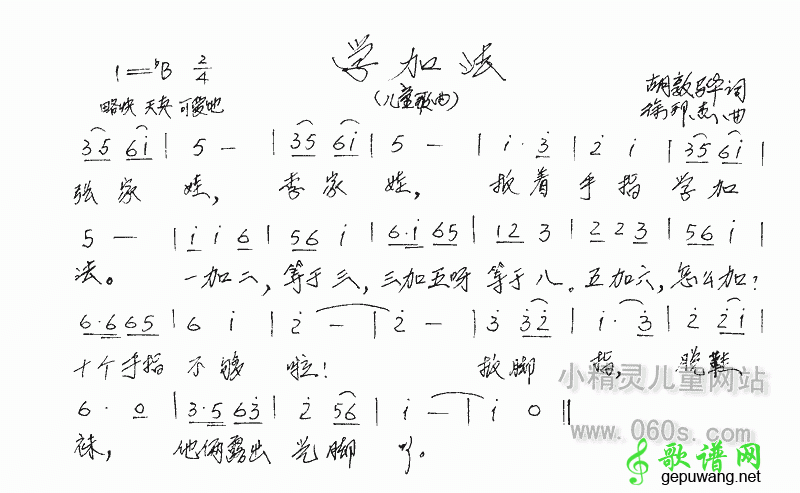 学加法
1=♭B 2/4
(儿童歌曲)
略快 天真 可爱地
胡敦骅词
徐邦杰曲
35 6i | 5 — | 35 6i | 5 — | i · 3 | 2 i | 35 6i |
张家娃, 李家娃, 扳着手指学加
5 — | i i 6 | 56 i | 6·i 65 | 12 3 | 2 2 3 | 56 i |
法。 一加二,等于三,三加五呀等于八。五加六,怎么加?
6·6 65 | 6 i | 2 — | 2 — | 3 32 | i · 3 | 2 2i |
十个手指不够啦! 扳脚指,脱鞋
6 · 0 | 3·5 63 | 2 56 | i — | i 0 ‖
袜, 他俩露出光脚丫。
小精灵儿童网站
www.060s.com
歌谱网
gepuwang.net